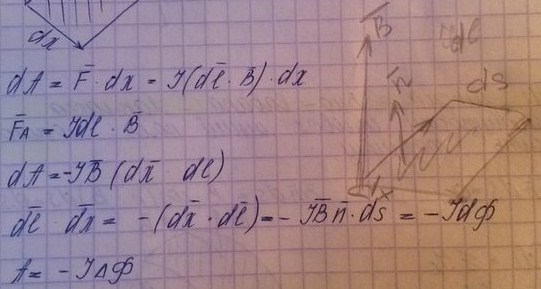 dx
dA = F̄ · dx = I(dl̄ · B̄) · dx
F̄A = Idl · B̄
dA = -IB̄ (dx̄ dl)
dl̄ dx̄ = -(dx̄ · dl̄) = - IB̄n̄ · ds = - Idф
A = - IΔФ
B̄
dl
ds
n̄
dx